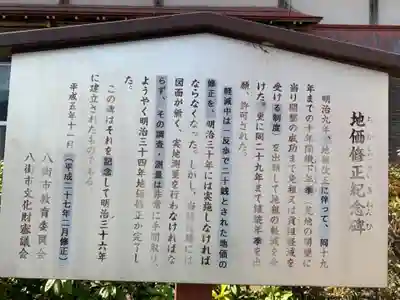 地価修正紀念碑
明治九年、地租改正に伴って、同十九
年までの十年間鍬下年季(荒地の開墾に
当り開墾の成功まで免租又は租税軽減を
受ける制度)を出願して地租の軽減を会
けた。更に同二十九年まで継続年季を出
願、許可された。
軽減中は一反歩で二十銭とされた地価の
修正を、明治三十年には実施しなければ
ならなくなった。しかし、当
図面が無く、実地測量を行わなければな
らず、その調査・測量は非常に手間取り、
ようやく明治三十四年地価修正が完了し
た。
この碑はそれを記念して明治三十六年
に建立されたものである。
平成五年十一月(平成二十七年二月修正)
八街市教育委員会
八街市文化財審議会